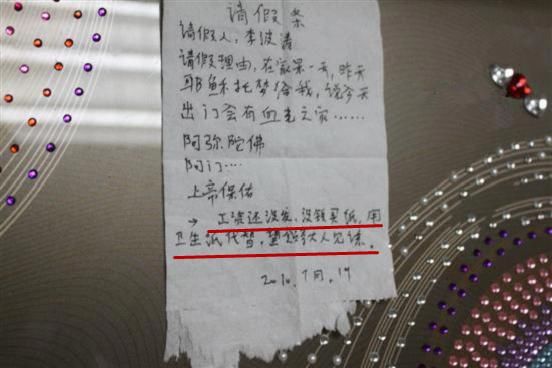 请假条
请假人，李波清
请假理由，在家呆一天，昨天
耶稣托梦给我，说今天
出门会有血光之灾……
阿弥陀佛
阿门…
上帝保佑
→ 工资还没发，没钱买纸，用
卫生纸代替，望领导大人见谅。
2010.7月.19